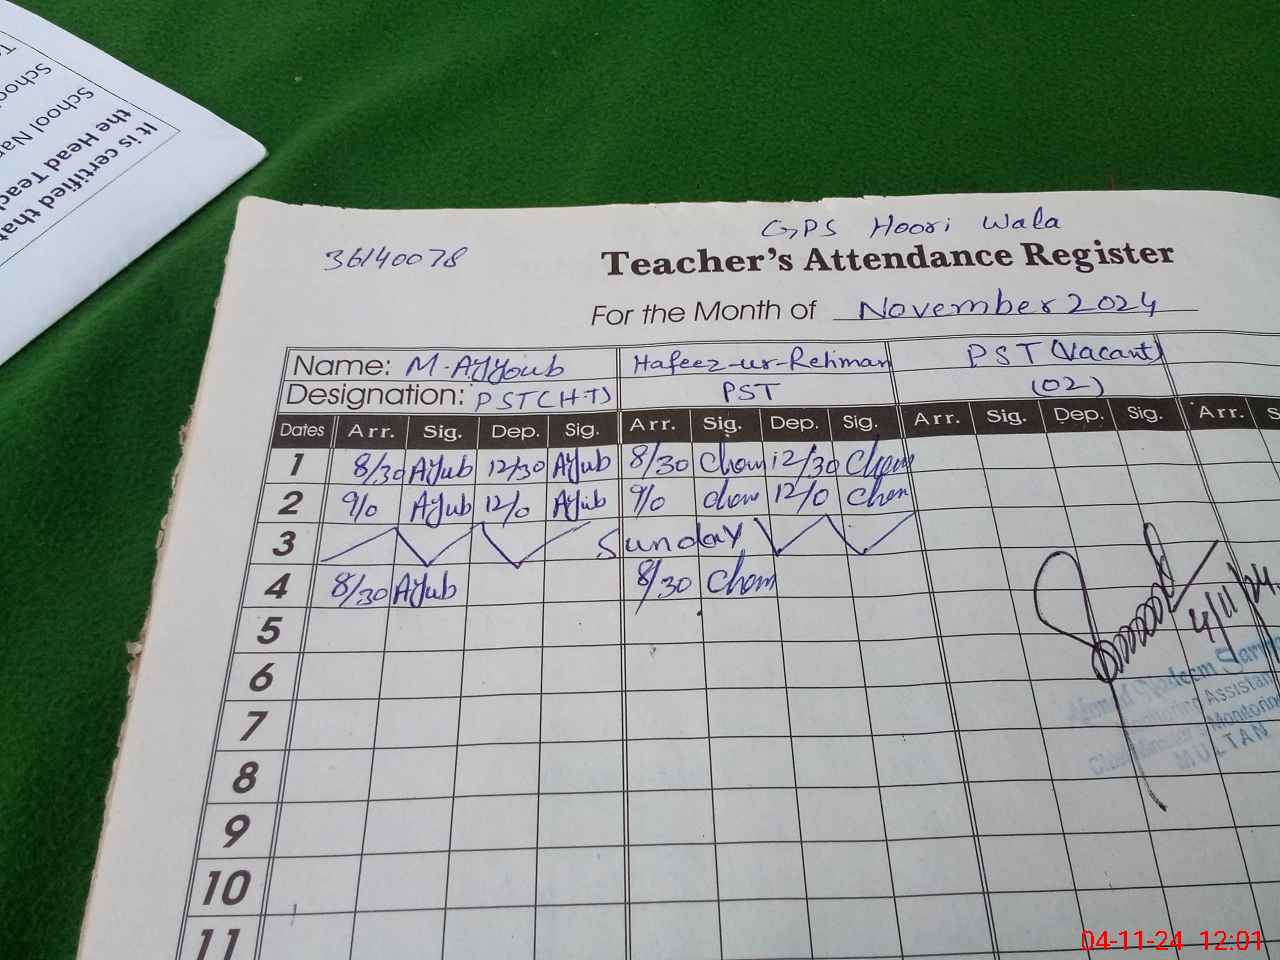 It is certified that
the Head Teac
School Nar
School
GPS Hoori Wala
36140078
Teacher's Attendance Register
For the Month of November 2024
Name: M. Ayyoub Hafeez-ur-Rehman PST (Vacant)
Designation: PST(H.T) PST (02)
Dates Arr. Sig. Dep. Sig. Arr. Sig. Dep. Sig. Arr. Sig. Dep. Sig. Arr. S
1 8/30 Ayub 12/30 Ayub 8/30 12/30
2 9/0 Ayub 12/0 Ayub 9/0 12/0
3 Sunday
4 8/30 Ayub 8/30
5
6
7
8
9
10
11
4/11/24
Assistan
Monitorin
MULTAN
04-11-24 12:01